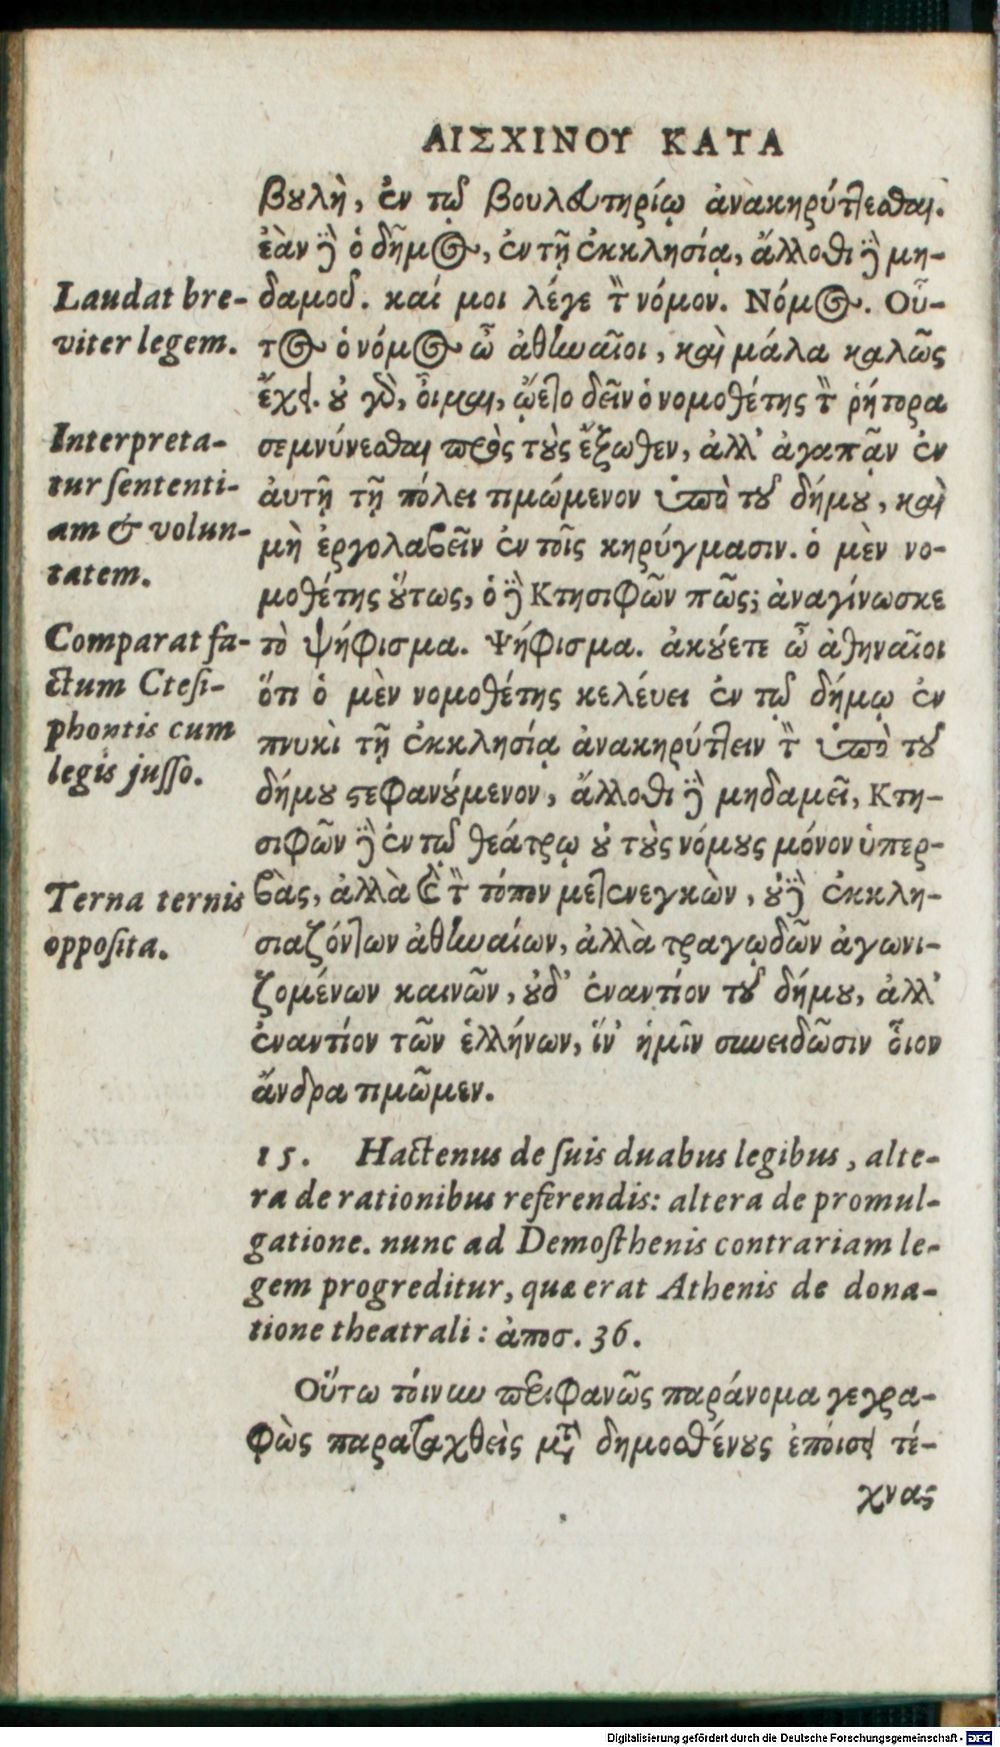 ΑΙΣΧΙΝΟΥ ΚΑΤΑ
βουλὴ, ἐν τῷ βουλευτηρίῳ ἀνακηρύττεσθαι.
ἐὰν δὲ ὁ δῆμος, ἐν τῇ ἐκκλησίᾳ, ἄλλοθι δὲ μη-
δαμοῦ. καί μοι λέγε τὸν νόμον. Νόμος. Οὗ-
τος ὁ νόμος ὦ ἀθηναῖοι, καὶ μάλα καλῶς
ἔχει. οὐ γὰρ, οἶμαι, ᾤετο δεῖν ὁ νομοθέτης τὸν ῥήτορα
σεμνύνεσθαι πρὸς τοὺς ἔξωθεν, ἀλλ' ἀγαπᾷν ἐν
αὐτῇ τῇ πόλει τιμώμενον ὑπὸ τοῦ δήμου, καὶ
μὴ ἐργολαβεῖν ἐν τοῖς κηρύγμασιν. ὁ μὲν νο-
μοθέτης οὕτως, ὁ δὲ Κτησιφῶν πῶς; ἀναγίνωσκε
τὸ ψήφισμα. Ψήφισμα. ἀκούετε ὦ ἀθηναῖοι
ὅτι ὁ μὲν νομοθέτης κελεύει ἐν τῷ δήμῳ ἐν
πνυκὶ τῇ ἐκκλησίᾳ ἀνακηρύττειν τὸν ὑπὸ τοῦ
δήμου στεφανούμενον, ἄλλοθι δὲ μηδαμεῖ, Κτη-
σιφῶν δὲ ἐν τῷ θεάτρῳ οὐ τοὺς νόμους μόνον ὑπερ-
βὰς, ἀλλὰ καὶ τὸν τόπον μετενεγκὼν, οὐδὲ ἐκκλη-
σιαζόντων ἀθηναίων, ἀλλὰ τραγῳδῶν ἀγωνι-
ζομένων καινῶν, οὐδ' ἐναντίον τοῦ δήμου, ἀλλ'
ἐναντίον τῶν ἑλλήνων, ἵν' ἡμῖν συνειδῶσιν οἷον
ἄνδρα τιμῶμεν.
Laudat bre-
viter legem.
Interpreta-
tur sententi-
am & volun-
tatem.
Comparat fa-
ctum Ctesi-
phontis cum
legis jusso.
Terna ternis
opposita.
15. Hactenus de suis duabus legibus, alte-
ra de rationibus referendis: altera de promul-
gatione. nunc ad Demosthenis contrariam le-
gem progreditur, quæ erat Athenis de dona-
tione theatrali: ἀποσ. 36.
Οὕτω τοίνυν περιφανῶς παράνομα γεγρα-
φὼς παραταχθεὶς μετὰ δημοσθένους ἐποισει τέ-
χνας
Digitalisierung gefördert durch die Deutsche Forschungsgemeinschaft - DFG